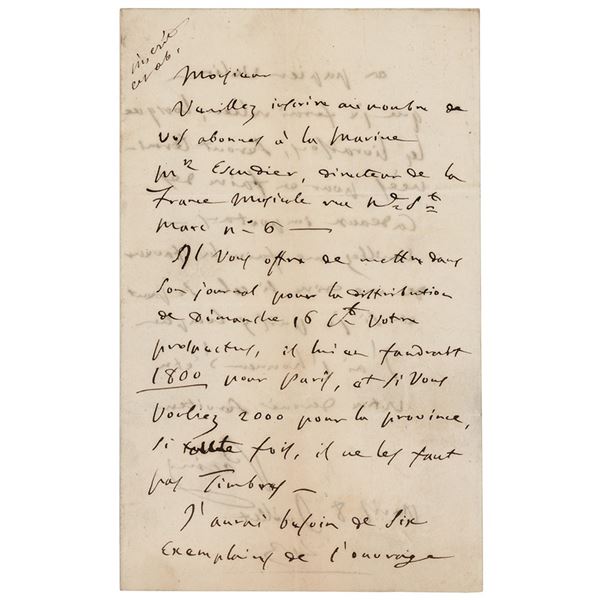 inscrit
Monsieur
Veuillez inscrire au nombre de
vos abonnés à la Marine
Mr Escudier, directeur de la
France Musicale rue Nve St
Marc n° 6 —
Il vous offre de mettre dans
son journal pour la distribution
de Dimanche 16 Ct votre
prospectus, il lui en faudrait
1800 pour Paris, et si vous
vouliez 2000 pour la province,
si toute fois, il ne les faut
pas Timbrés —
J'aurai besoin de six
Exemplaires de l'ouvrage